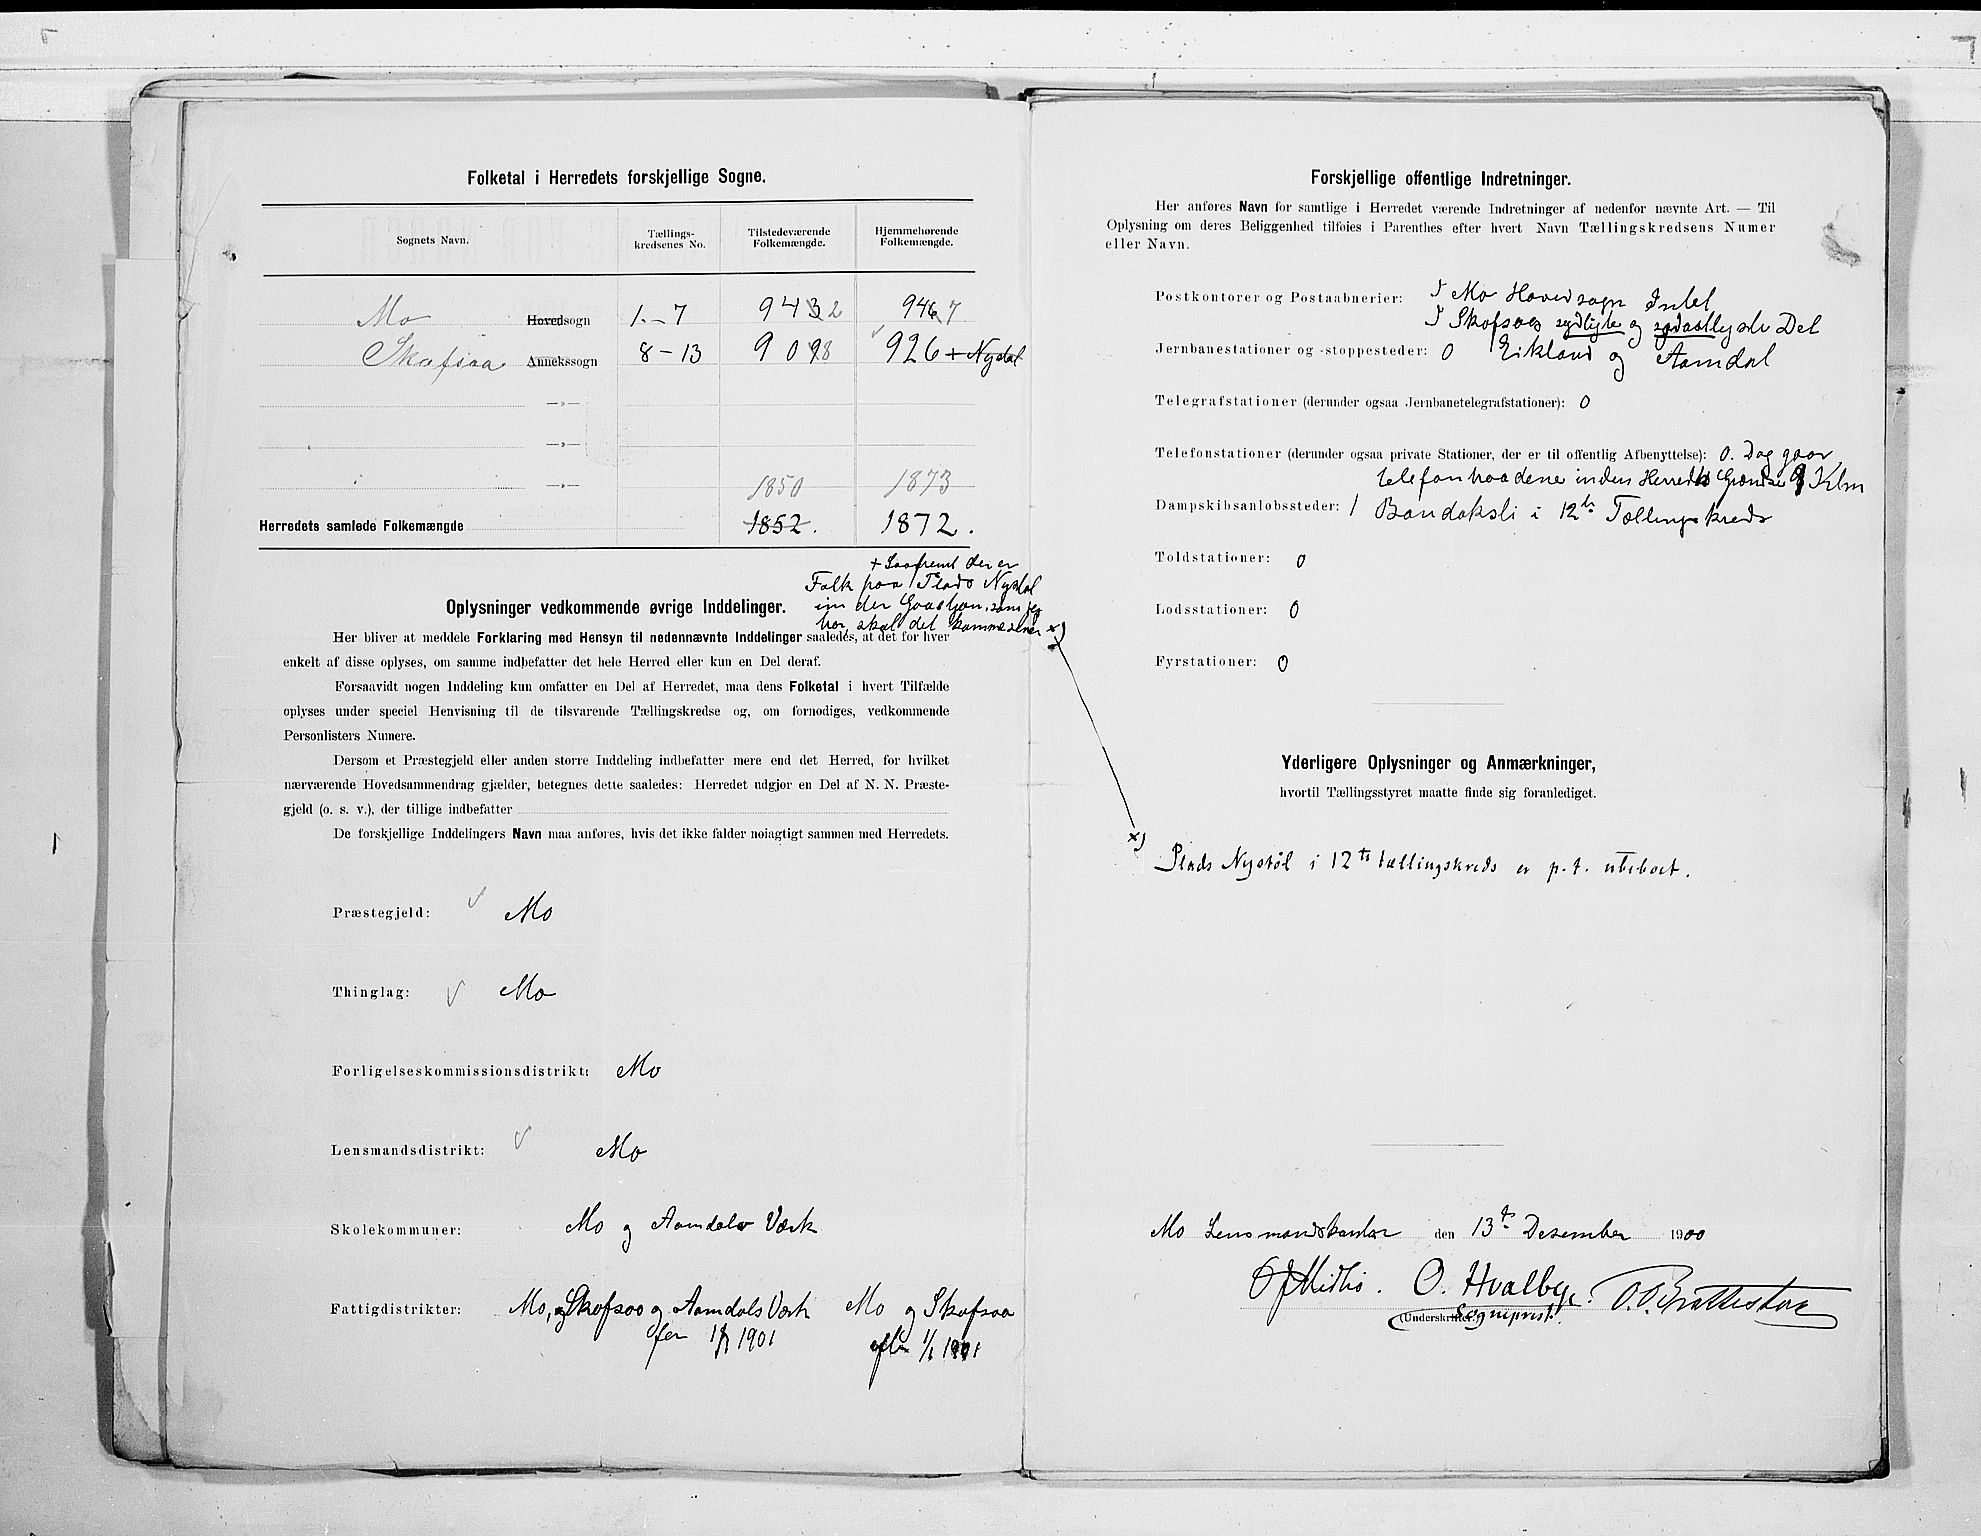 Folketal i Herredets forskjellige Sogne.
Sognets Navn.
Tællings-
kredsenes No.
Tilstedeværende
Folkemængde.
Hjemmehørende
Folkemængde.
Mo Hovedsogn 1.-7 9432 9467
Skafsaa Annekssogn 8-13 9098 926 + Nydal
—»—
—»—
—»— 1850 1873
Herredets samlede Folkemængde 1852. 1872.
+ Saafremt der er
Folk paa Plads Nystøl
Oplysninger vedkommende øvrige Inddelinger.
Her bliver at meddele Forklaring med Hensyn til nedennævnte Inddelinger saaledes, at det for hver
enkelt af disse oplyses, om samme indbefatter det hele Herred eller kun en Del deraf.
Forsaavidt nogen Inddeling kun omfatter en Del af Herredet, maa dens Folketal i hvert Tilfælde
oplyses under speciel Henvisning til de tilsvarende Tællingskredse og, om fornødiges, vedkommende
Personlisters Numere.
Dersom et Præstegjeld eller anden større Inddeling indbefatter mere end det Herred, for hvilket
nærværende Hovedsammendrag gjælder, betegnes dette saaledes: Herredet udgjør en Del af N. N. Præste-
gjeld (o. s. v.), der tillige indbefatter
De forskjellige Inddelingers Navn maa anføres, hvis det ikke falder nøiagtigt sammen med Herredets.
Præstegjeld: Mo
Thinglag: Mo
Forligelseskommissionsdistrikt: Mo
Lensmandsdistrikt: Mo
Skolekommuner: Mo og Aamdals Værk
Fattigdistrikter: Mo, Skafsaa og Aamdals Værk Mo og Skafsaa
før 1/1 1901 efter 1/1 1901
Forskjellige offentlige Indretninger.
Her anføres Navn for samtlige i Herredet værende Indretninger af nedenfor nævnte Art. — Til
Oplysning om deres Beliggenhed tilføies i Parenthes efter hvert Navn Tællingskredsens Numer
eller Navn.
Postkontorer og Postaabnerier: I Mo Hovedsogn Intet
I Skafsaas sydligte og sydøstligste Del
Jernbanestationer og -stoppesteder: 0 Eikland og Aamdal
Telegrafstationer (derunder ogsaa Jernbanetelegrafstationer): 0
Telefonstationer (derunder ogsaa private Stationer, der er til offentlig Afbenyttelse): 0. Dog gaar
telefontraadene inden Herredets Grændse 9 Klm
Dampskibsanløbssteder: 1 Bandaksli i 12te Tællingskreds
Toldstationer: 0
Lodsstationer: 0
Fyrstationer: 0
Yderligere Oplysninger og Anmærkninger,
hvortil Tællingsstyret maatte finde sig foranlediget.
x) Plads Nystøl i 12te tællingskreds er p. t. ubeboet.
Mo Lensmandskontor den 13de Desember 1900
O. Hvalbye.
(Underskrifter.) Sogneprest.